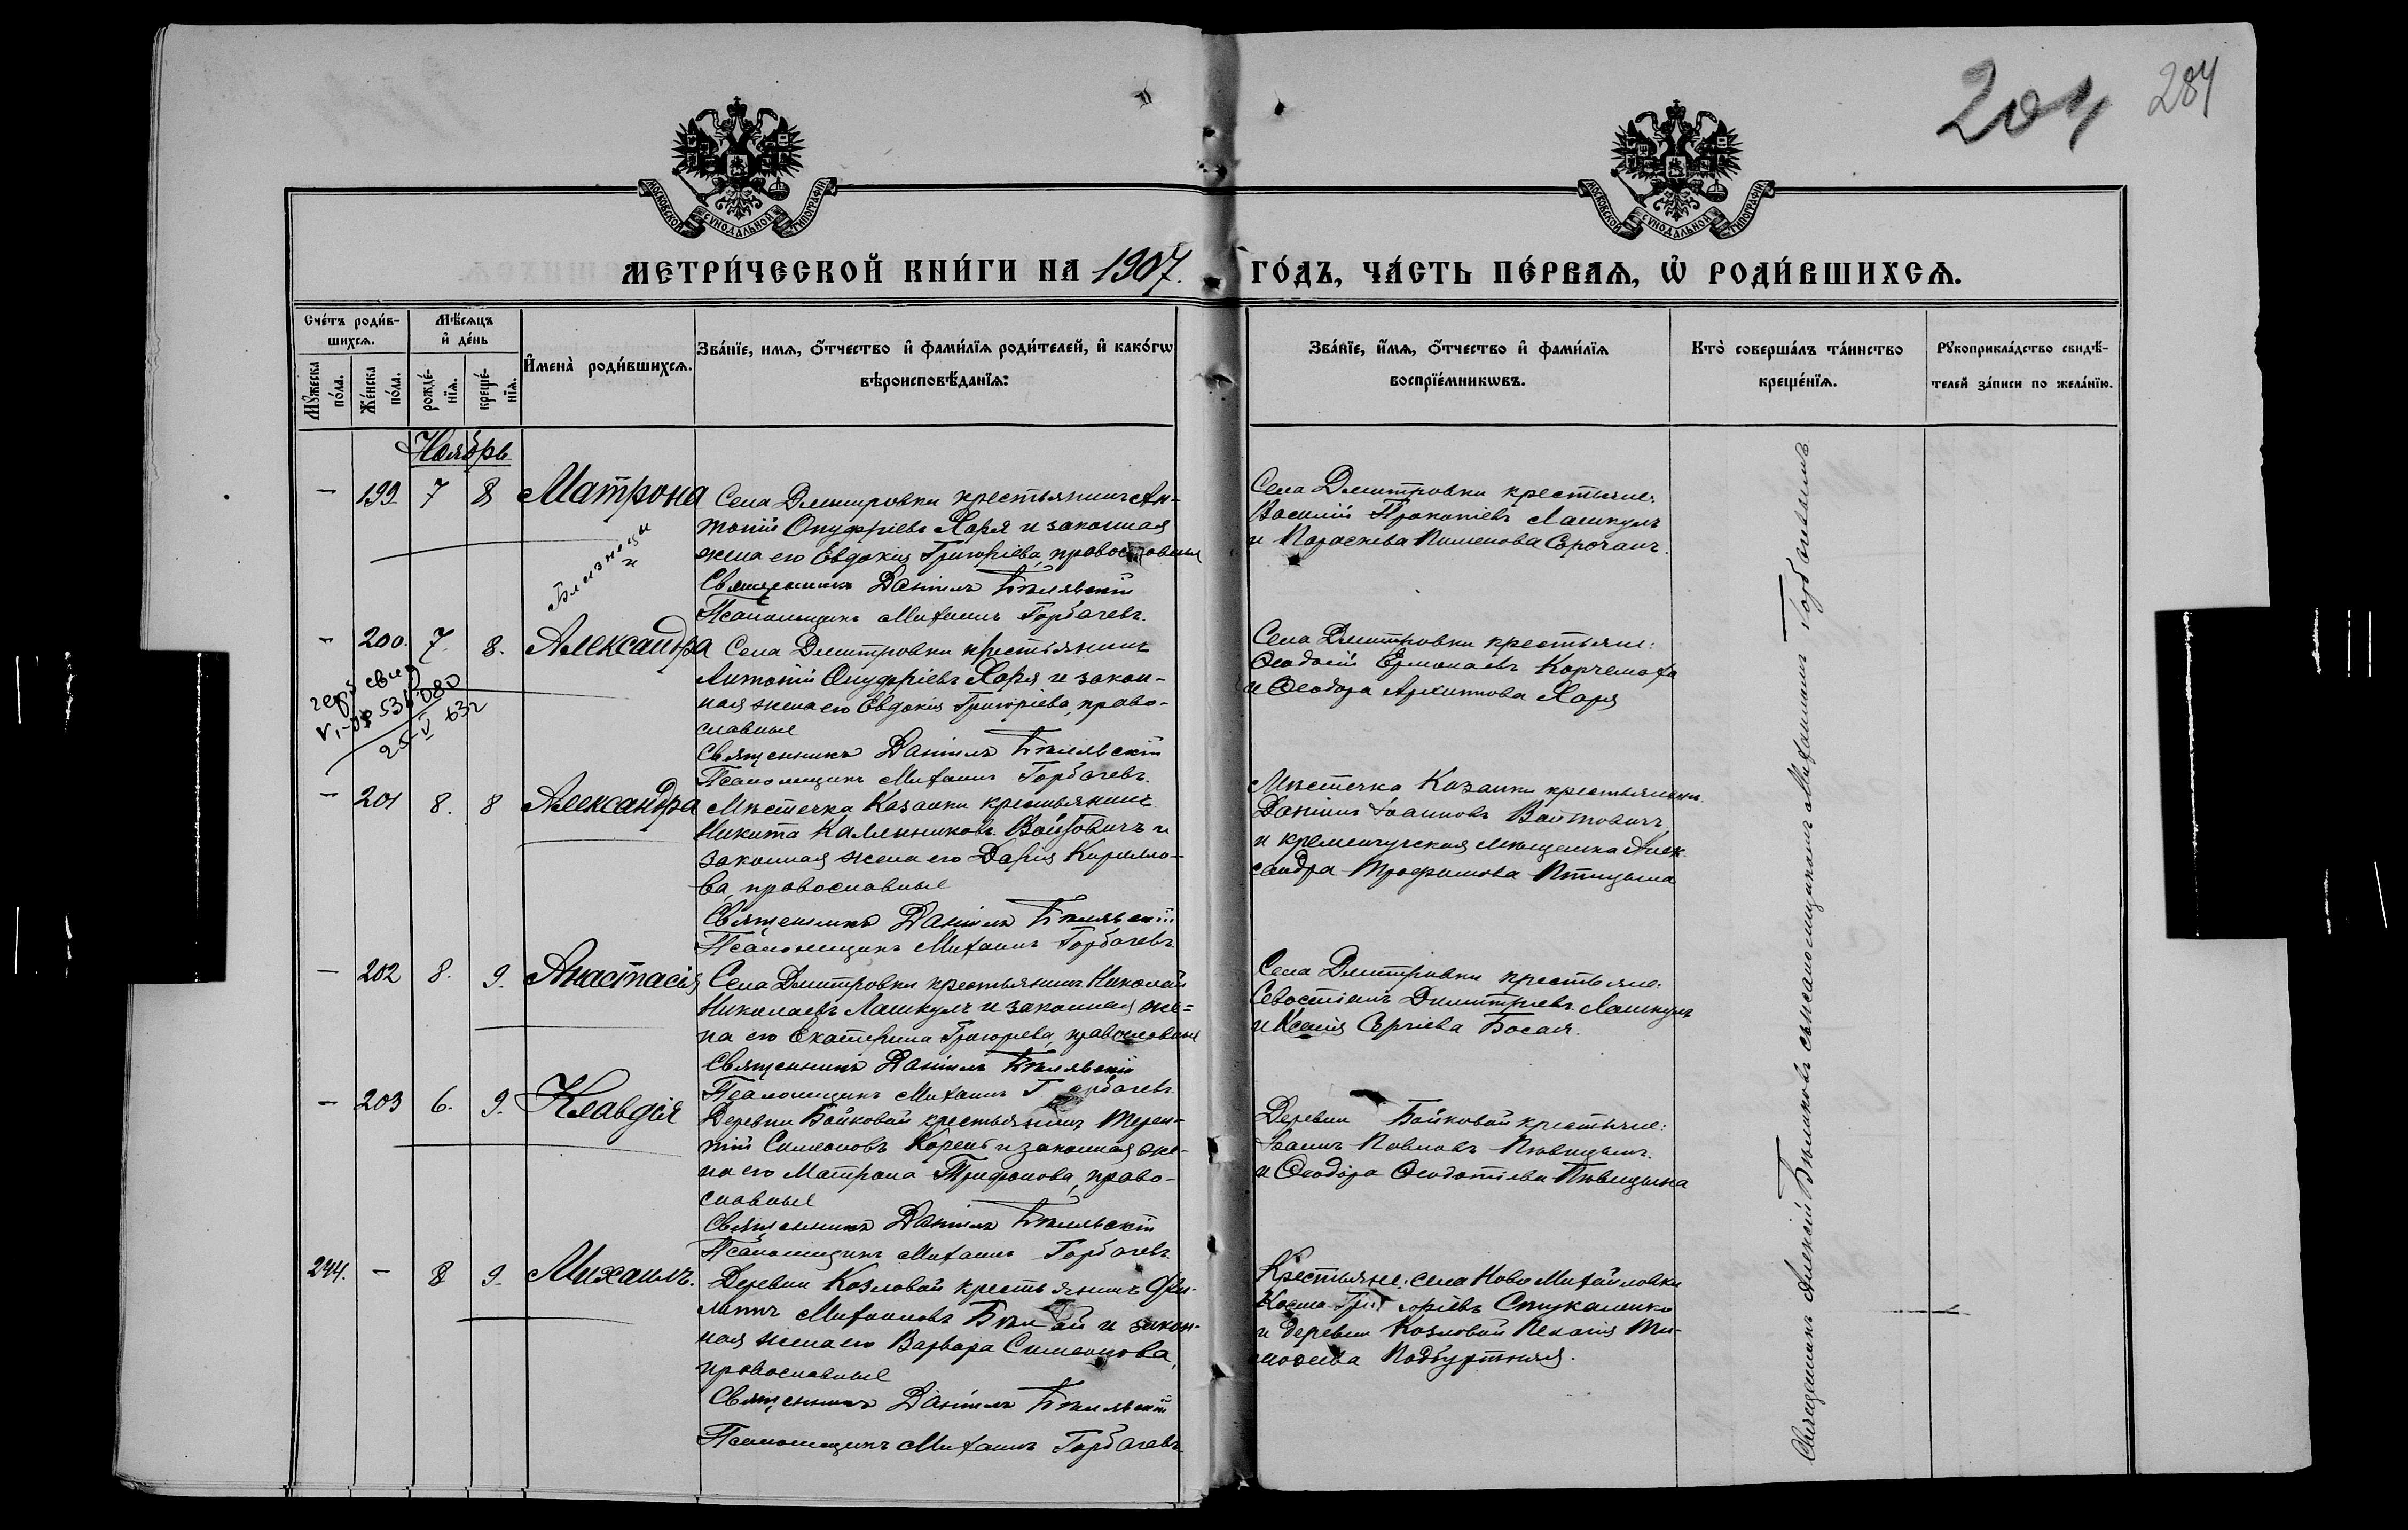 204 284
МОСКОВСКОЙ СѴНОДАЛЬНОЙ ТИПОГРАФІИ
МОСКОВСКОЙ СѴНОДАЛЬНОЙ ТИПОГРАФІИ
МЕТРИ́ЧЕСКОЙ КНИ́ГИ НА 1907. ГО́ДЪ, ЧА́СТЬ ПЕ́РВАѦ, Ѡ҆ РОДИ́ВШИХСѦ.
Сче́тъ роди́в-
шихсѧ.
Мꙋ́жеска
по́ла.
Же́нска
по́ла.
Мѣ́сѧцъ
и҆ де́нь
рожде́-
нїѧ.
креще́-
нїѧ.
И҆мена̀ роди́вшихсѧ.
Зва́нїе, имѧ, ѻ҆́тчество и҆ фами́лїѧ роди́телей, и҆ како́гѡ
вѣроисповѣ́данїѧ:
Зва́нїе, и҆́мѧ, ѻ҆́тчество и҆ фами́лїѧ
воспрїе́мникѡвъ.
Кто̀ соверша́лъ та́инство
креще́нїѧ.
Рꙋкоприкла́дство свидѣ́-
телей за́писи по жела́нїю.
Ноябрь
— 199 7 8 Матрона
Села Дмитровки крестьянинъ Ан-
тоній Онуфріевъ Харя и законная
жена его Евдокія Григоріева, православные
Священникъ Даніилъ Бѣлявскій
Псаломщикъ Михаилъ Горбачевъ.
Села Дмитровки крестьяне:
Василій Прокопіевъ Лашкулъ
и Параскева Пименова Сорочанъ.
Близнецы
и
— 200. 7. 8. Александра
Села Дмитровки крестьянинъ
Антоній Онуфріевъ Харя и закон-
ная жена его Евдокія Григоріева, право-
славные
Священникъ Даніилъ Бѣлявскій
Псаломщикъ Михаилъ Горбачевъ.
Села Дмитровки крестьяне:
Ѳеодосій Ермолаевъ Корчемаха
и Ѳеодора Архиппова Харя
— 201 8. 8 Александра
Мѣстечка Казанки крестьянинъ
Никита Каллиниковъ Войтовичъ и
законная жена его Дарія Кирилло-
ва, православные
Священникъ Даніилъ Бѣлявскій
Псаломщикъ Михаилъ Горбачевъ
Мѣстечка Казанки крестьянинъ
Даніилъ Іоанновъ Войтовичъ
и кременчугская мѣщанка Алек-
сандра Трофимова Птицына
— 202 8. 9. Анастасія
Села Дмитровки крестьянинъ Николай
Николаевъ Лашкулъ и законная же-
на его Екатерина Григорьева, православные
Священникъ Даніилъ Бѣлявскій
Псаломщикъ Михаилъ Горбачевъ
Села Дмитровки крестьяне:
Севостіанъ Димитріевъ Лашкулъ
и Ксенія Сергіева Босая.
— 203 6. 9. Клавдія
Деревни Бойковой крестьянинъ Терен-
тій Симеоновъ Корень и законная же-
на его Матрона Трифонова, право-
славные
Священникъ Даніилъ Бѣлявскій
Псаломщикъ Михаилъ Горбачевъ.
Деревни Бойковой крестьяне:
Іоаннъ Павловъ
и Ѳеодора
244. — 8 9. Михаилъ.
Деревни Козловой крестьянинъ Фи-
липпъ Михаиловъ и закон-
ная жена его Варвара Симеонова,
православные
Священникъ Даніилъ Бѣлявскій
Псаломщикъ Михаилъ Горбачевъ
Крестьяне: села Ново Михайловки
Косма Григоріевъ Стукаленко
и деревни Козловой Пелагія Ти-
моѳеева
Священникъ Алексій Бѣликовъ съ псаломщикомъ Михаиломъ Горбачевымъ